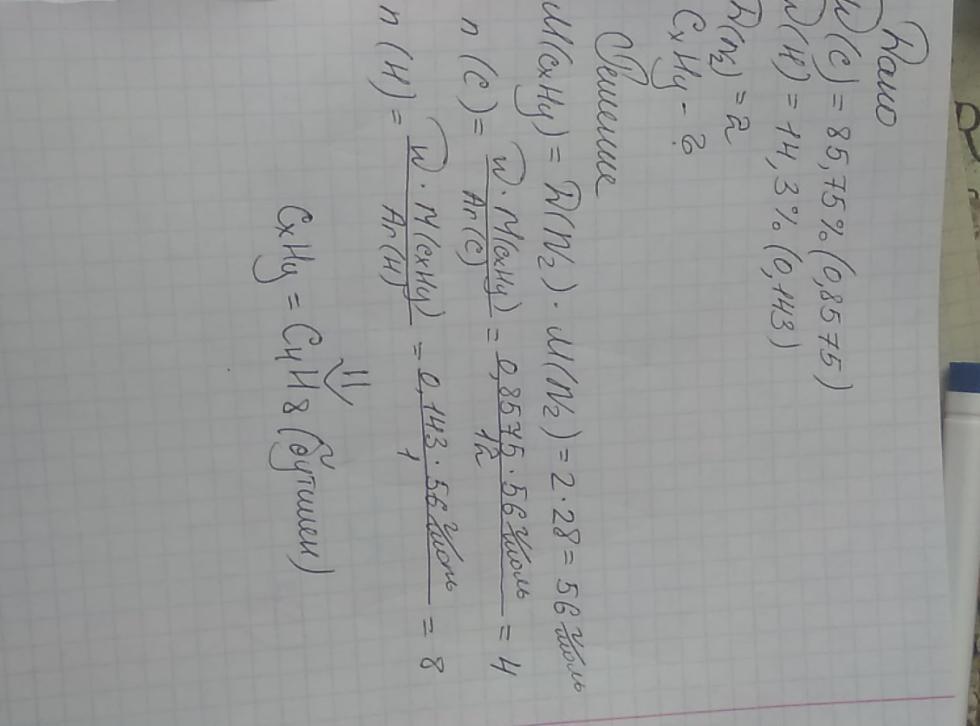 Дано
W(C) = 85,75% (0,8575)
W(H) = 14,3% (0,143)
D(N2) = 2
CxHy - ?
Решение
M(CxHy) = D(N2) · M(N2) = 2 · 28 = 56 г/моль
n(C) = W · M(CxHy) / Ar(C) = 0,8575 · 56 г/моль / 12 = 4
n(H) = W · M(CxHy) / Ar(H) = 0,143 · 56 г/моль / 1 = 8
⇓
CxHy = C4H8 (бутилен)